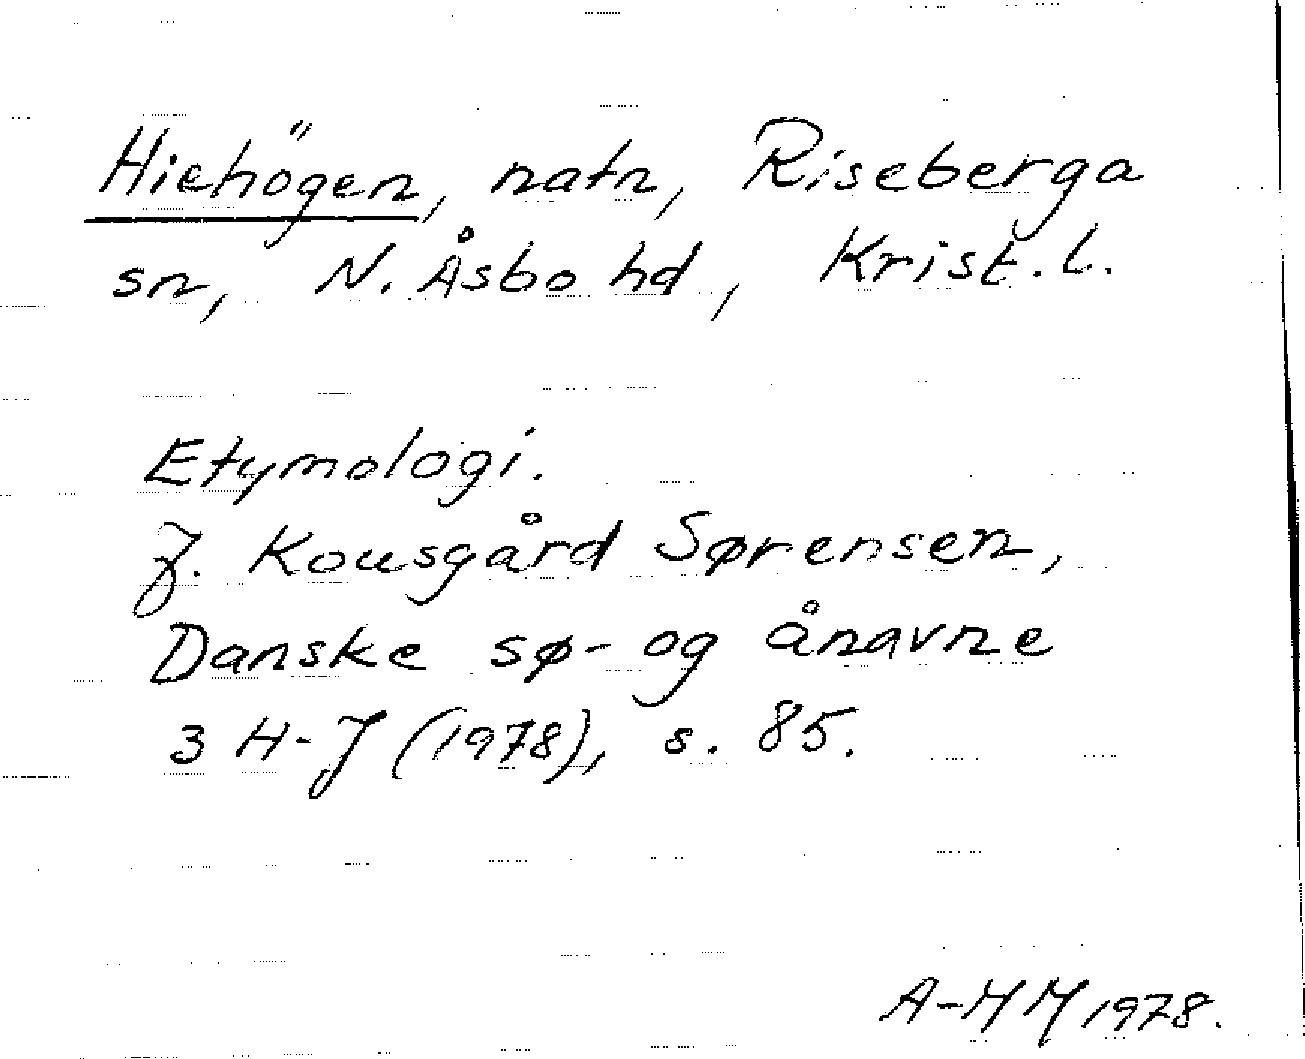 Hiehögen, natn, Riseberga
sn, N. Åsbo hd, Krist. l.
Etymologi.
J. Kousgård Sørensen,
Danske sø- og ånavne
3 H-J (1978), s. 85.
A-MM 1978.